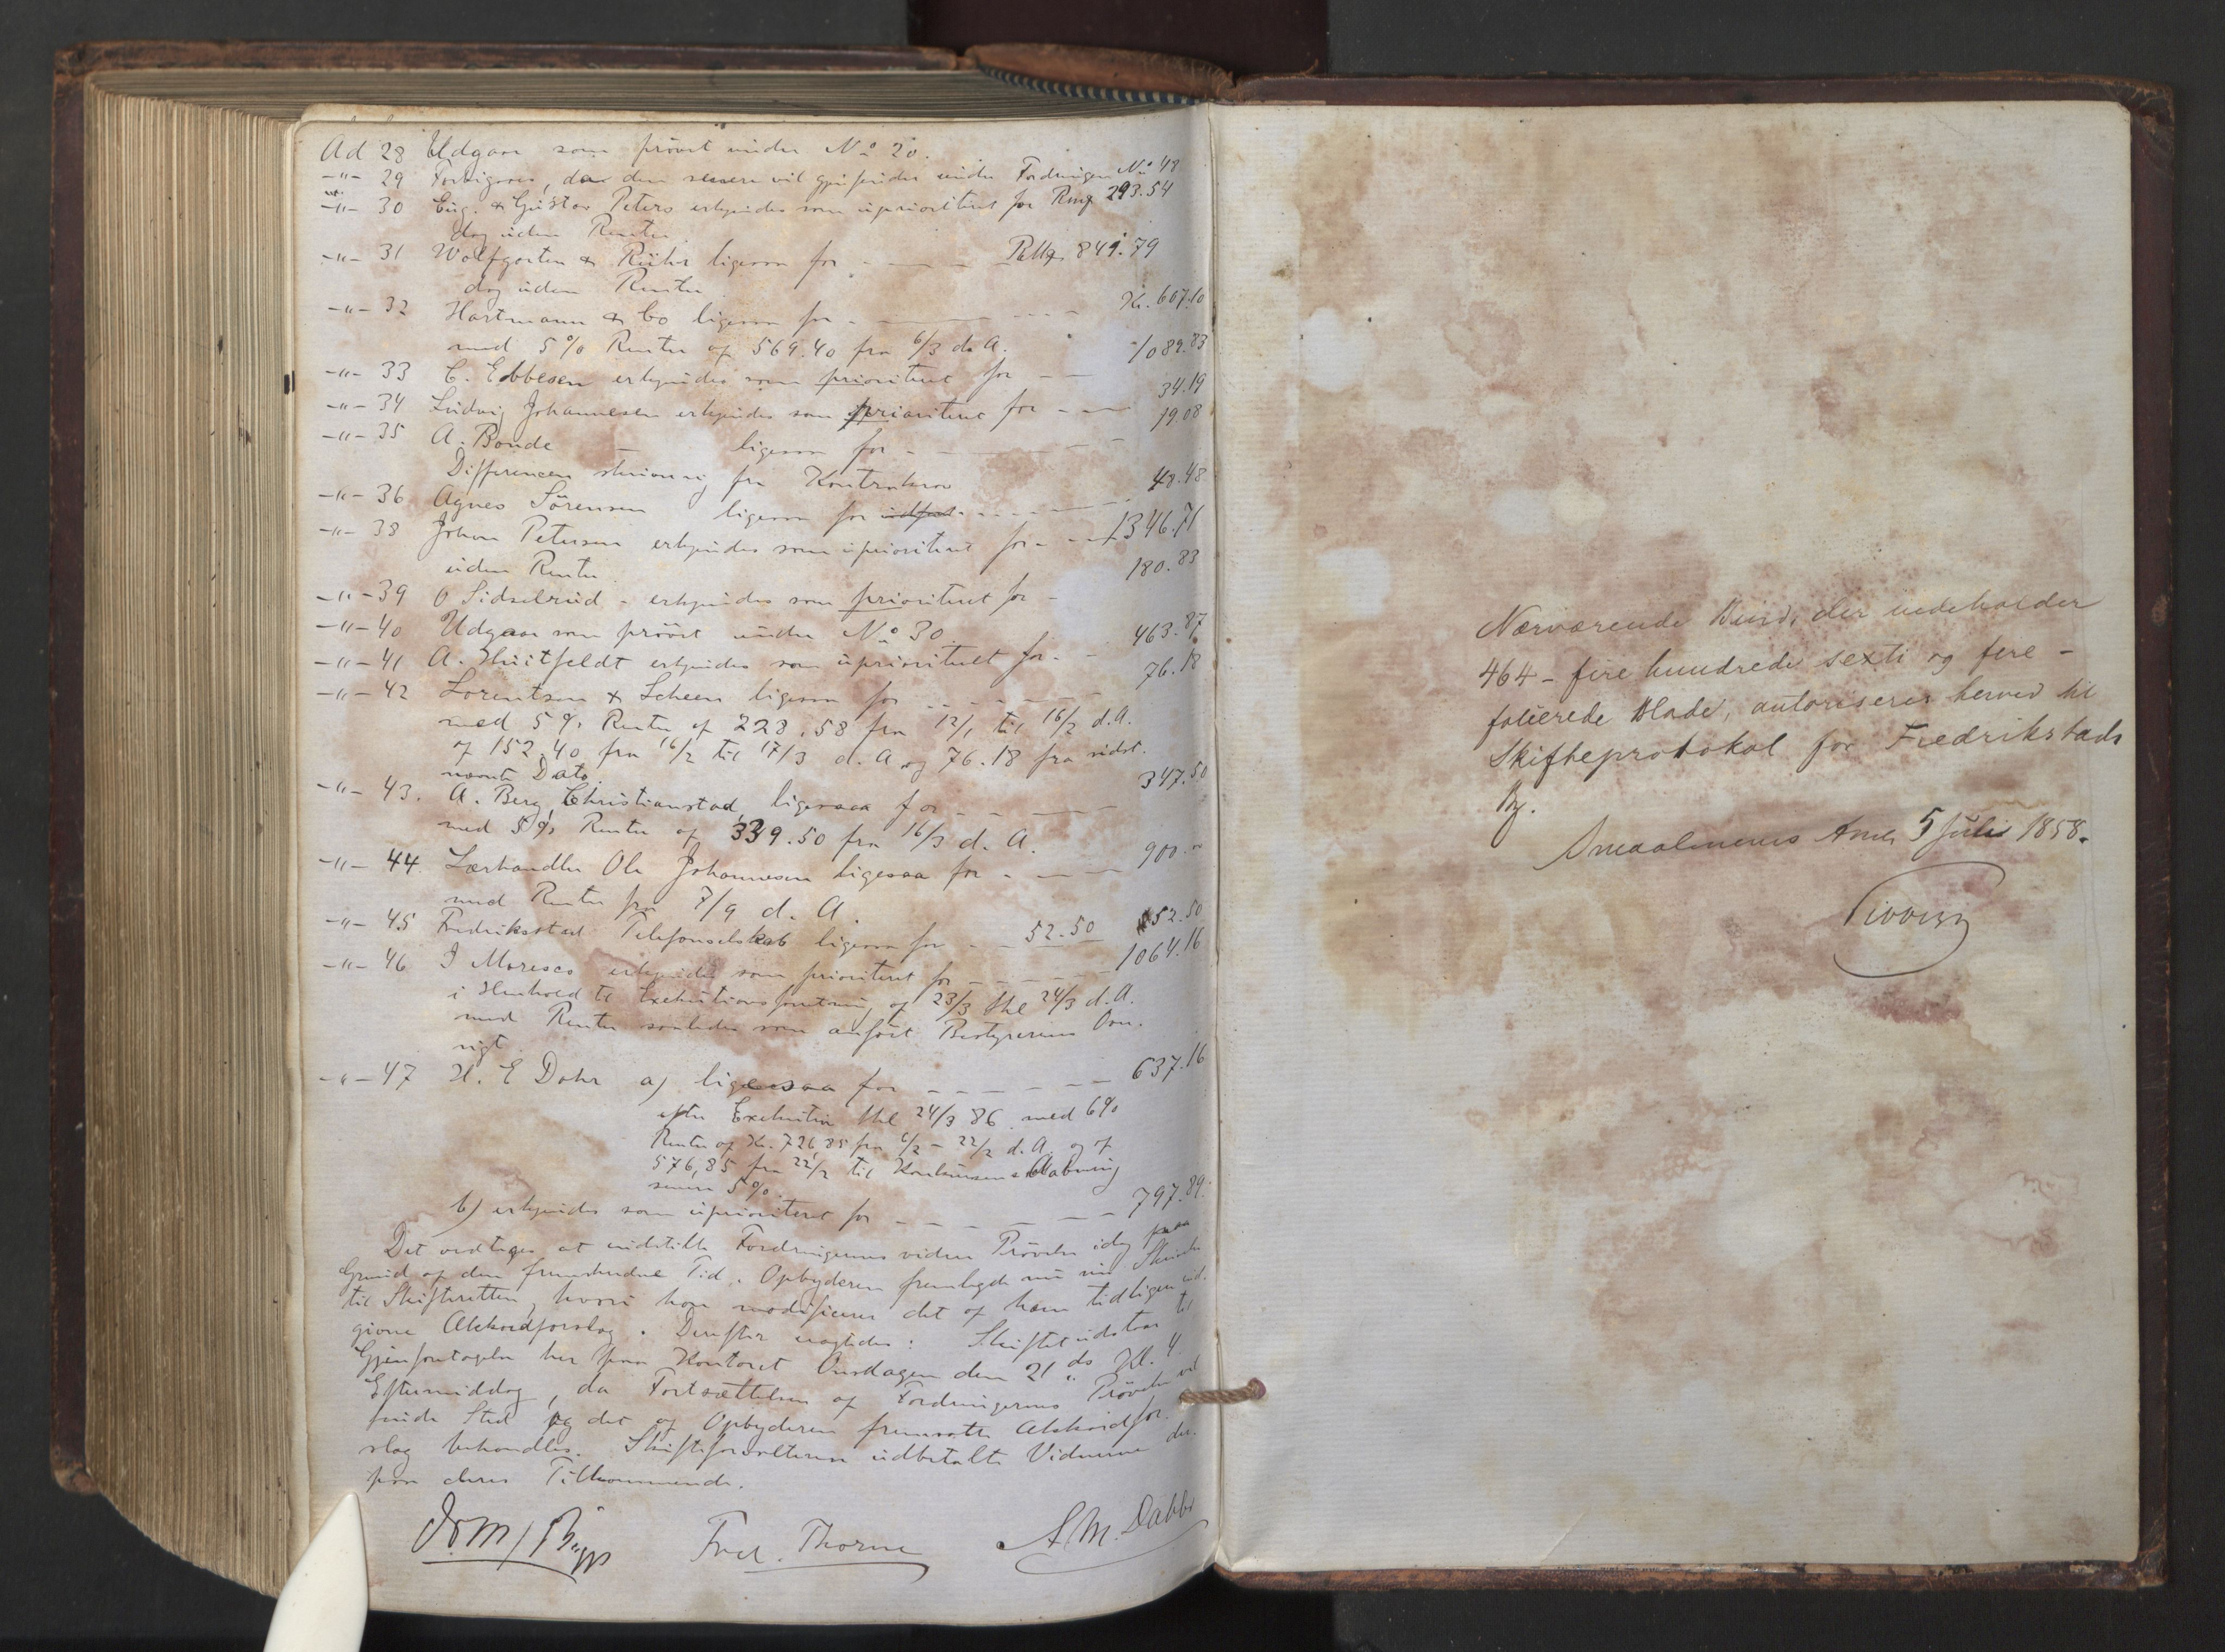 Ad 28 Udgaar som prövet under No 20.
-"- 29 Forbigaaes, da den senere vil gjenfindes under Fordringen No 48
-"- 30 Eug. & Gustav Peters erkjendes som uprioriteret for Rmk 293.54
dog uden Renter
-"- 31 Wolfgarten & Rühr ligesaa for - - - 841.79
dog uden Renter
-"- 32 Hartmann & Co ligesaa for - - - Kr. 607.10
med 5 % Renter af 569.40 fra 6/3 d. A.
-"- 33 C. Ebbesen erkjendes som prioriteret for - - 1082.83
-"- 34 Ludvig Johannesen erkjendes som prioriteret for - - - 34.19
-"- 35 A. Bonde - ligesaa for - - - 19.08
Differencen skriver sig fra Kontrakurv
-"- 36 Agnes Sörensen ligesaa for - - - 48.48
-"- 38 Johan Petersen erkjendes som uprioriteret for - - 1346.71
uden Renter
-"- 39 O Sidselrud - erkjendes som prioriteret for - 180.83
-"- 40 Udgaar som prövet under No 30
-"- 41 A. Huitfeldt erkjendes som uprioriteret for - - 463.87
-"- 42 Lorentsen & Scheen ligesaa for - - - 76.18
med 5 % Renter af 228.58 fra 12/1 til 16/2 d. A.
af 152.40 fra 16/2 til 17/3 d. A og 76.18 fra sidst
nævnte Dato.
-"- 43. A. Berg, Christianstad, ligesaa for - - - 347.50
med 5 % Renter af 339.50 fra 16/3 d. A.
-"- 44. Lærhandler Ole Johannesen ligesaa for - - - 900.00
med Renter fra 7/9 d. A.
-"- 45 Fredriksstad Telefonselskab ligesaa for - - 52.50 52.50
-"- 46 I Moresco erkjendes som prioriteret for - - - 1064.16
i Henhold til Exekutionsforretning af 23/3 thl 24/3 d. A.
med Renter saaledes som anfört Bestyrerens Over-
sigt.
-"- 47 H. E Dohr a) ligesaa for - - - 637.16
efter Exekution thl 24/3 86 med 6 %
Renter af Kr. 726,85 fra 6/2 - 22/2 d. A. og af
576,85 fra 22/2 til Konkursens Aabning
senere 5 %.
b) erkjendes som uprioriteret for - - - 797.89.
Det vedtages at indstille Fordringernes videre Prövelse idag paa
Grund af den fremskredne Tid. Opbyderen fremlagde nu sin Skrivelse
til Skifteretten, hvori han modificerer det af ham tidligere ind-
givne Akkordforslag. Derefter vagtedes: Skiftet udstaar til
Gjenforetagelse her paa Kontoret Onsdagen den 21 ds Kl. 4
Eftermiddag, da Fortsættelsen af Fordringernes Prövelse vil
finde Sted og det af Opbyderen fremsatte Akkordfor-
slag behandles. Skifteforvalteren udbetalte Vidnerne der-
paa deres Tilkommende.
Fred. Thorne A. M. Dabbe
Nærværende Bind, der indeholder
464 - fire hundrede sexti og fire -
folierede Blade, autoriseres herved til
Skifteprotokol for Fredrikstads
By.
Smaalenenes Amt, 5 Juli 1858.